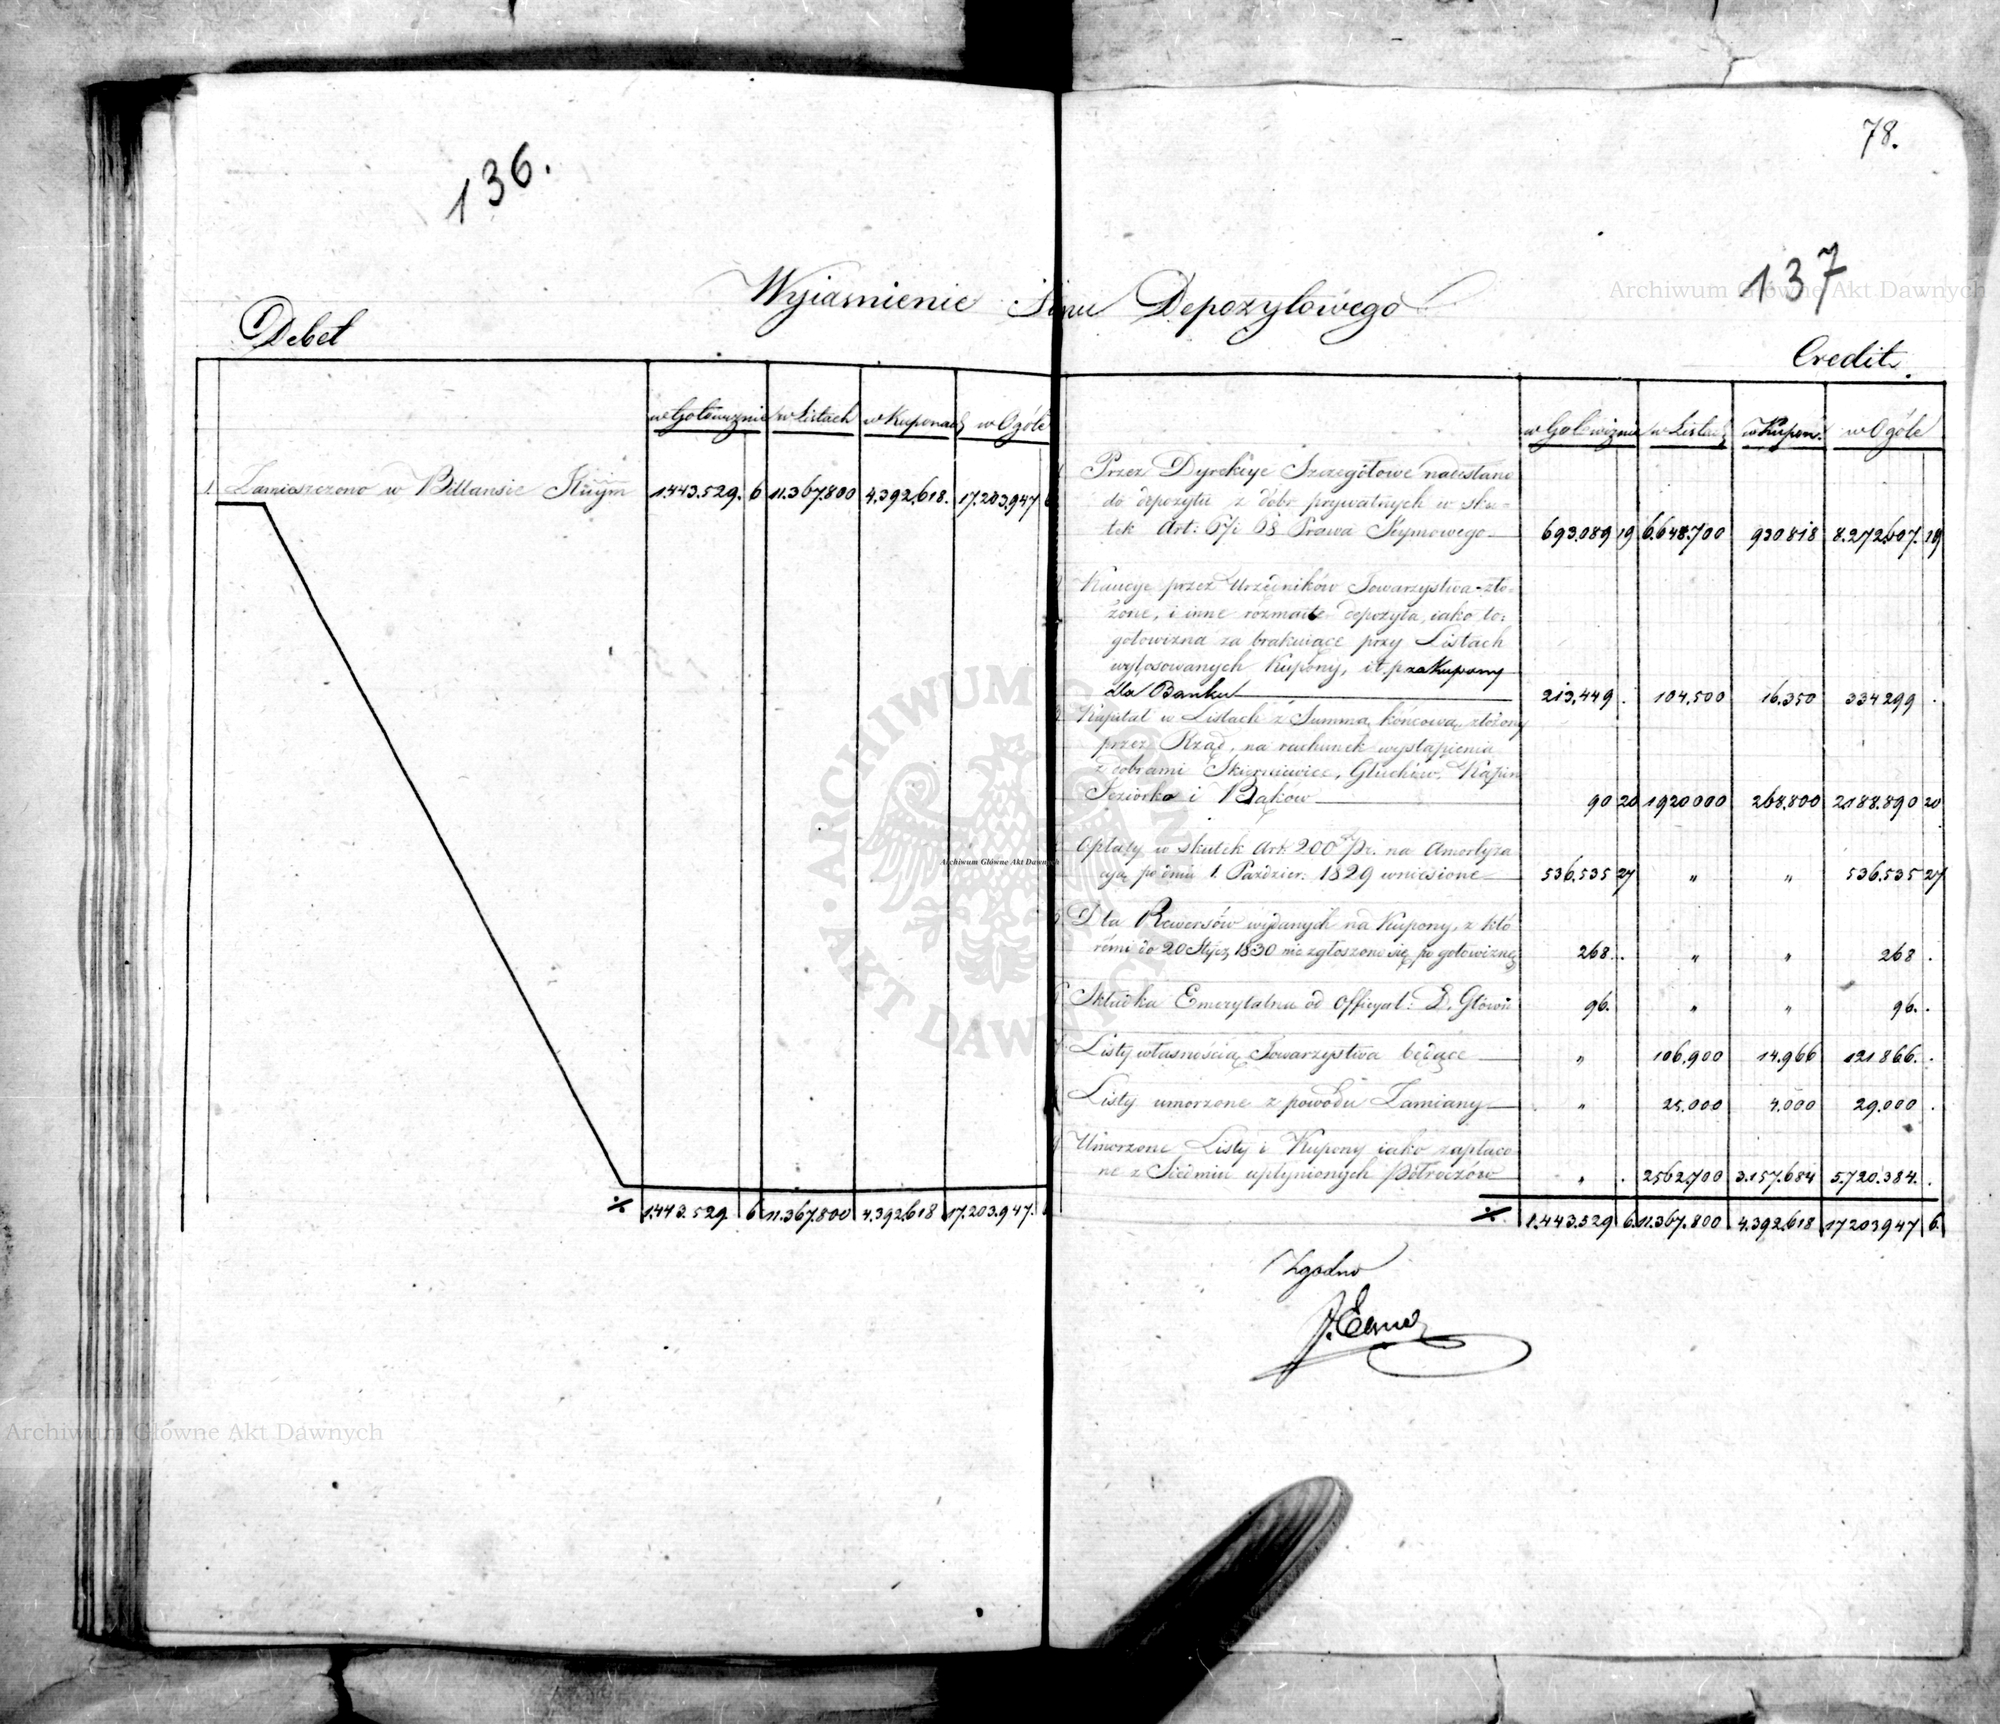 136.
78.
137
Wyiasnienie Stanu Depozytowego
Debet
Credit.
w Gotowiznie w Listach w Kuponach w Ogóle
1. Zamieszczono w Billansie 1.443.529. 6 11.367.800 4.392.618. 17.203.947
% 1.443.529 6 11.367.800 4.392.618 17.203.947.
w Gotowiznie w Listach w Kupon. w Ogóle
Przez Dyrekcye Szczegółowe nadesłane
do depozytu z dóbr prywatnych w sku-
tek Art: 67 i 68 Prawa Seymowego 693.089 19 6.648.700 930.818 8.272.607. 19
Kaucye przez Urzędników Towarzystwa zło-
żone, i inne rozmaite depozyta, iako to:
gotowizna za brakuiące przy Listach
wylosowanych Kupony, i t. p. za Kupony
dla Banku 213.449 . 104.500 16.350 334 299 .
Kapitał w Listach z Summą końcową, złożony
przez Rząd, na rachunek wystąpienia
z dobrami Skierniewice, Głuchów,
Jeziorko i Bąków 90 20 1920 000 268.800 2188.890 20
Opłaty w skutek Art. 200 Pr. na Amortyza-
cyą po dniu 1. Paździer: 1829 wniesione 536.535 27 " " 536.535 27
Dla Rewersów wydanych na Kupony, z któ-
remi do 20 Stycz. 1830 nie zgłoszono się po gotowiznę 268. . " " 268 .
Składka Emerytalna od Officyal: D. Główn 96. . " " 96. .
Listy własnością Towarzystwa będące " 106.900 14.966 121 866. .
Listy umorzone z powodu Zamiany " 25.000 4.000 29.000 .
Umorzone Listy i Kupony iako zapłaco-
ne z Siedmiu upłynionych Półroczów " . 2562.700 3.157.684 5.720.384. .
% 1.443.529 6. 11.367.800 4.392.618 17 203 947 6.
Zgodno
Archiwum Główne Akt Dawnych
Archiwum Główne Akt Dawnych
Archiwum Główne Akt Dawnych